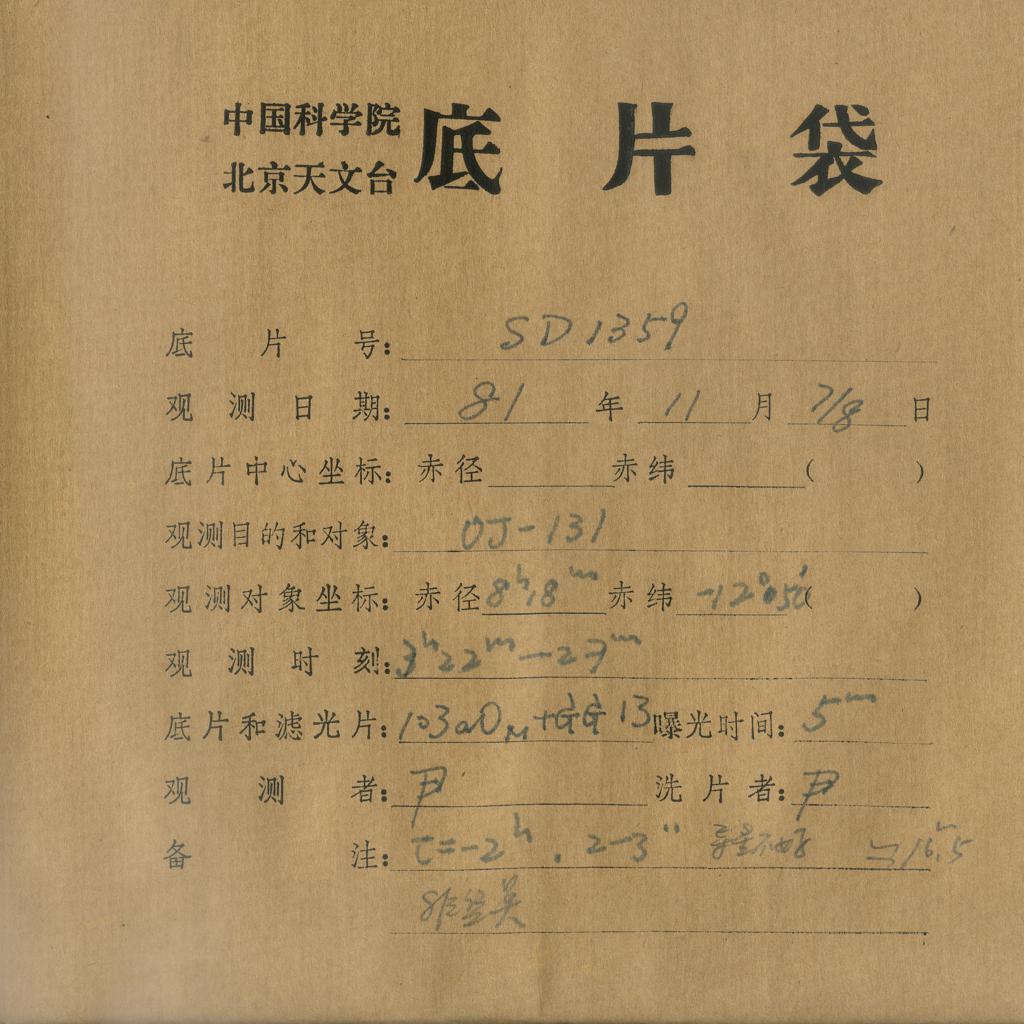 中国科学院
北京天文台
底片袋
底片号: SD1359
观测日期: 81 年 11 月 7/8 日
底片中心坐标: 赤径 赤纬 ( )
观测目的和对象: OJ-131
观测对象坐标: 赤径 8h18m 赤纬 -12° ( )
观测时刻: 3h22m-27m
底片和滤光片: 103aO +GG13 曝光时间: 5m
观测者: 尹 洗片者: 尹
备注: t=-2h. 2-3"